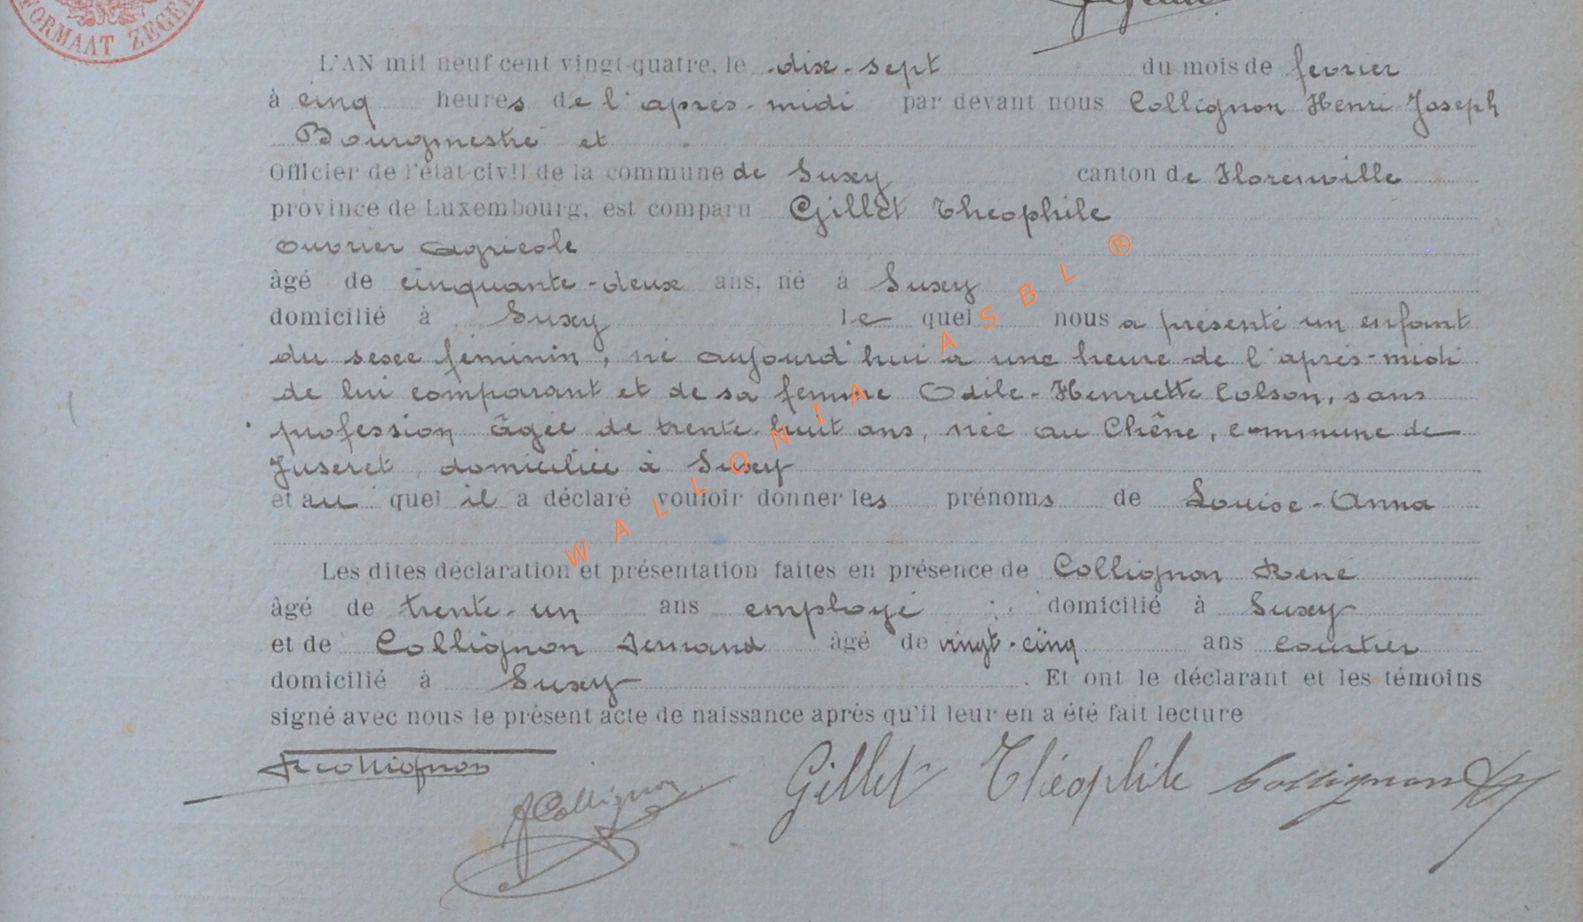 FORMAAT ZEGEL
L'AN mil neuf cent vingt-quatre, le dix-sept du mois de fevrier
à cinq heures de l'après-midi par devant nous Collignon Henri-Joseph
Bourgmestre et
Officier de l'état-civil de la commune de Suxy canton de Florenville
province de Luxembourg, est comparu Gillet Théophile
ouvrier agricole
âgé de cinquante-deux ans, né à Suxy
domicilié à Suxy le quel nous a présenté un enfant
du sexe féminin, né aujourd'hui à une heure de l'après-midi
de lui comparant et de sa femme Odile-Henriette Colson, sans
profession âgée de trente-huit ans, née au Chêne, commune de
Juseret, domiciliée à Suxy
et au quel il a déclaré vouloir donner les prénoms de Louise-Anna
Les dites déclaration et présentation faites en présence de Collignon René
âgé de trente-un ans employé domicilié à Suxy
et de Collignon Fernand âgé de vingt-cinq ans courtier
domicilié à Suxy. Et ont le déclarant et les témoins
signé avec nous le présent acte de naissance après qu'il leur en a été fait lecture
R Collignon
F Collignon
Gillet Théophile Collignon
WALLONIA ASBL ®